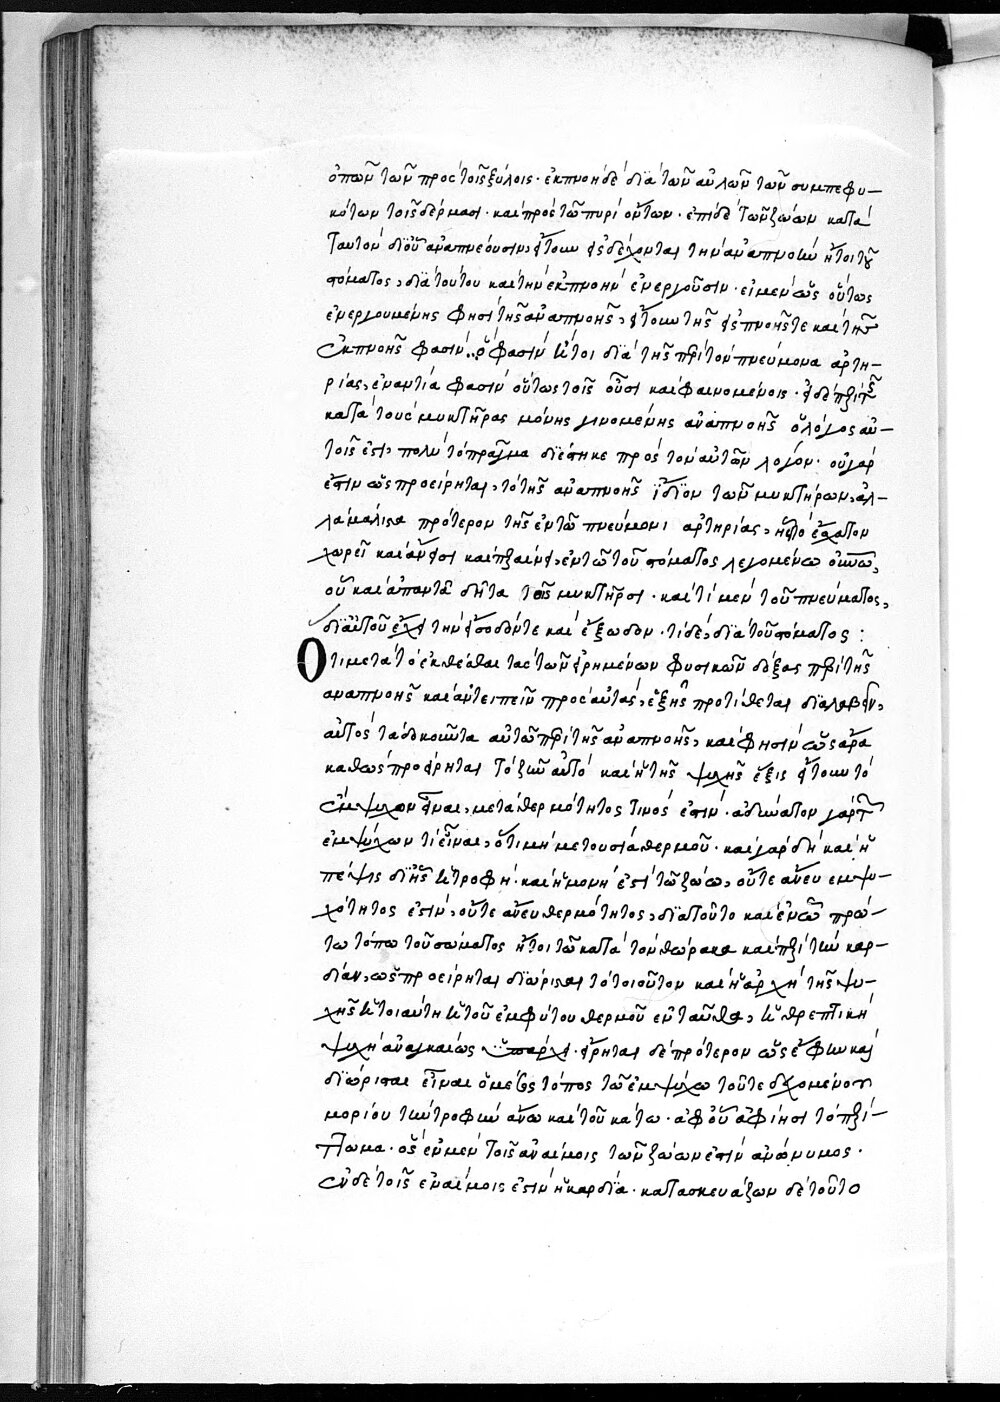 ὀπῶν τῶν πρὸς τοῖς ξύλοις· ἐκπνοὴ δὲ διὰ τῶν αὐλῶν τῶν συμπεφυ-
κότων τοῖς δέρμασι· καὶ πρὸς τῶ πυρὶ ὄντων· ἐπὶ δὲ τῶν ζώων κατὰ
ταυτὸν δι' οὗ ἀναπνέουσιν, ἤτοι εἰσδέχονται τὴν ἀναπνοὴν ἤτοι τοῦ
στόματος, διὰ τούτου καὶ τὴν ἐκπνοὴν ἐνεργοῦσιν· εἰ μὲν ὡς οὕτως
ἐνεργουμένης φησὶ τῆς ἀναπνοῆς, ἤτοι τῆς εἰσπνοῆς τε καὶ τῆς
ἐκπνοῆς φασίν, ὃ φασίν ἤτοι διὰ τῆς περὶ τὸν πνεύμονα ἀρτη-
ρίας, ἐναντία φασὶν οὕτως τοῖς οὖσι καὶ φαινομένοις· εἰ δὲ περὶ τῆς
κατὰ τοὺς μυκτῆρας μόνης γινομένης ἀναπνοῆς ὁ λόγος αὐ-
τοῖς ἐστι, πολὺ τὸ πρᾶγμα διέστηκε πρὸς τὸν αὐτῶν λόγον· οὐ γάρ
ἐστιν ὡς προείρηται, τὸ τῆς ἀναπνοῆς ἴδιον τῶν μυκτήρων, ἀλ-
λὰ μάλιστα πρότερον τῆς ἐν τῶ πνεύμονι ἀρτηρίας, ἧς τὸ ἔσχατον
χωρεῖ καὶ ἄνεισι καὶ περαίνει, ἐν τῶ τοῦ στόματος λεγομένω οὐρανῶ,
οὗ καὶ ἀπαντᾶ δῆτα τοῖς μυκτῆρσι· καὶ τὶ μὲν τοῦ πνεύματος,
δι' αὐτοῦ ἔχει τὴν εἴσοδόν τε καὶ ἔξοδον· τὶ δὲ, διὰ τοῦ στόματος :
Ὅτι μετὰ τὸ ἐκθέσθαι τὰς τῶν εἰρημένων φυσικῶν δόξας περὶ τῆς
ἀναπνοῆς καὶ ἀντειπεῖν πρὸς αὐτάς, ἑξῆς προτίθεται διαλαβεῖν,
αὐτὸς τὰ δοκοῦντα αὐτῶ περὶ τῆς ἀναπνοῆς, καὶ φησὶν ὡς ἄρα
καθὼς προείρηται τὸ ζῆν αὐτὸ καὶ ἡ τῆς ψυχῆς ἕξις ἤτοι τὸ
ἔμψυχον εἶναι, μετὰ θερμότητος τινός ἐστιν· ἀδύνατον γὰρ
ἐμψύχων τί εἶναι, ὅτι μὴ μετουσία θερμοῦ· καὶ γὰρ δὴ καὶ ἡ
πέψις δι' ἧς ἡ τροφὴ· καὶ ἡ μονή ἐστι τῶ ζώω, οὔτε ἄνευ ἐμψυ-
χότητός ἐστιν, οὔτε ἄνευ θερμότητος, διὰ τοῦτο καὶ ἐν ὧ πρώ-
τω τόπω τοῦ σώματος ἤτοι τῶ κατὰ τὸν θώρακα καὶ περὶ τὴν καρ-
δίαν, ὡς προείρηται διώρισται τὸ τοιοῦτον καὶ ἡ ἀρχὴ τῆς ψυ-
χῆς ἡ τοιαύτη ἡ τοῦ ἐμφύτου θερμοῦ ἐνταῦθα, ἡ θρεπτικὴ
ψυχὴ ἀναγκαίως ὑπάρχει· εἴρηται δὲ πρότερον ὡς ἔφην καὶ
διώρισται εἶναι ὁ μέσος τόπος τῶ ἐμψύχω τοῦ τε δεχομένου
μορίου τὴν τροφὴν ἄνω καὶ τοῦ κάτω· ἀφ' οὗ ἀφίησι τὸ περί-
ττωμα· ὃς ἐν μὲν τοῖς ἀναίμοις τῶν ζώων ἐστὶν ἀνώνυμος·
ἐν δὲ τοῖς ἐναίμοις ἐστὶν ἡ καρδία· κατασκευάζων δὲ τοῦτο